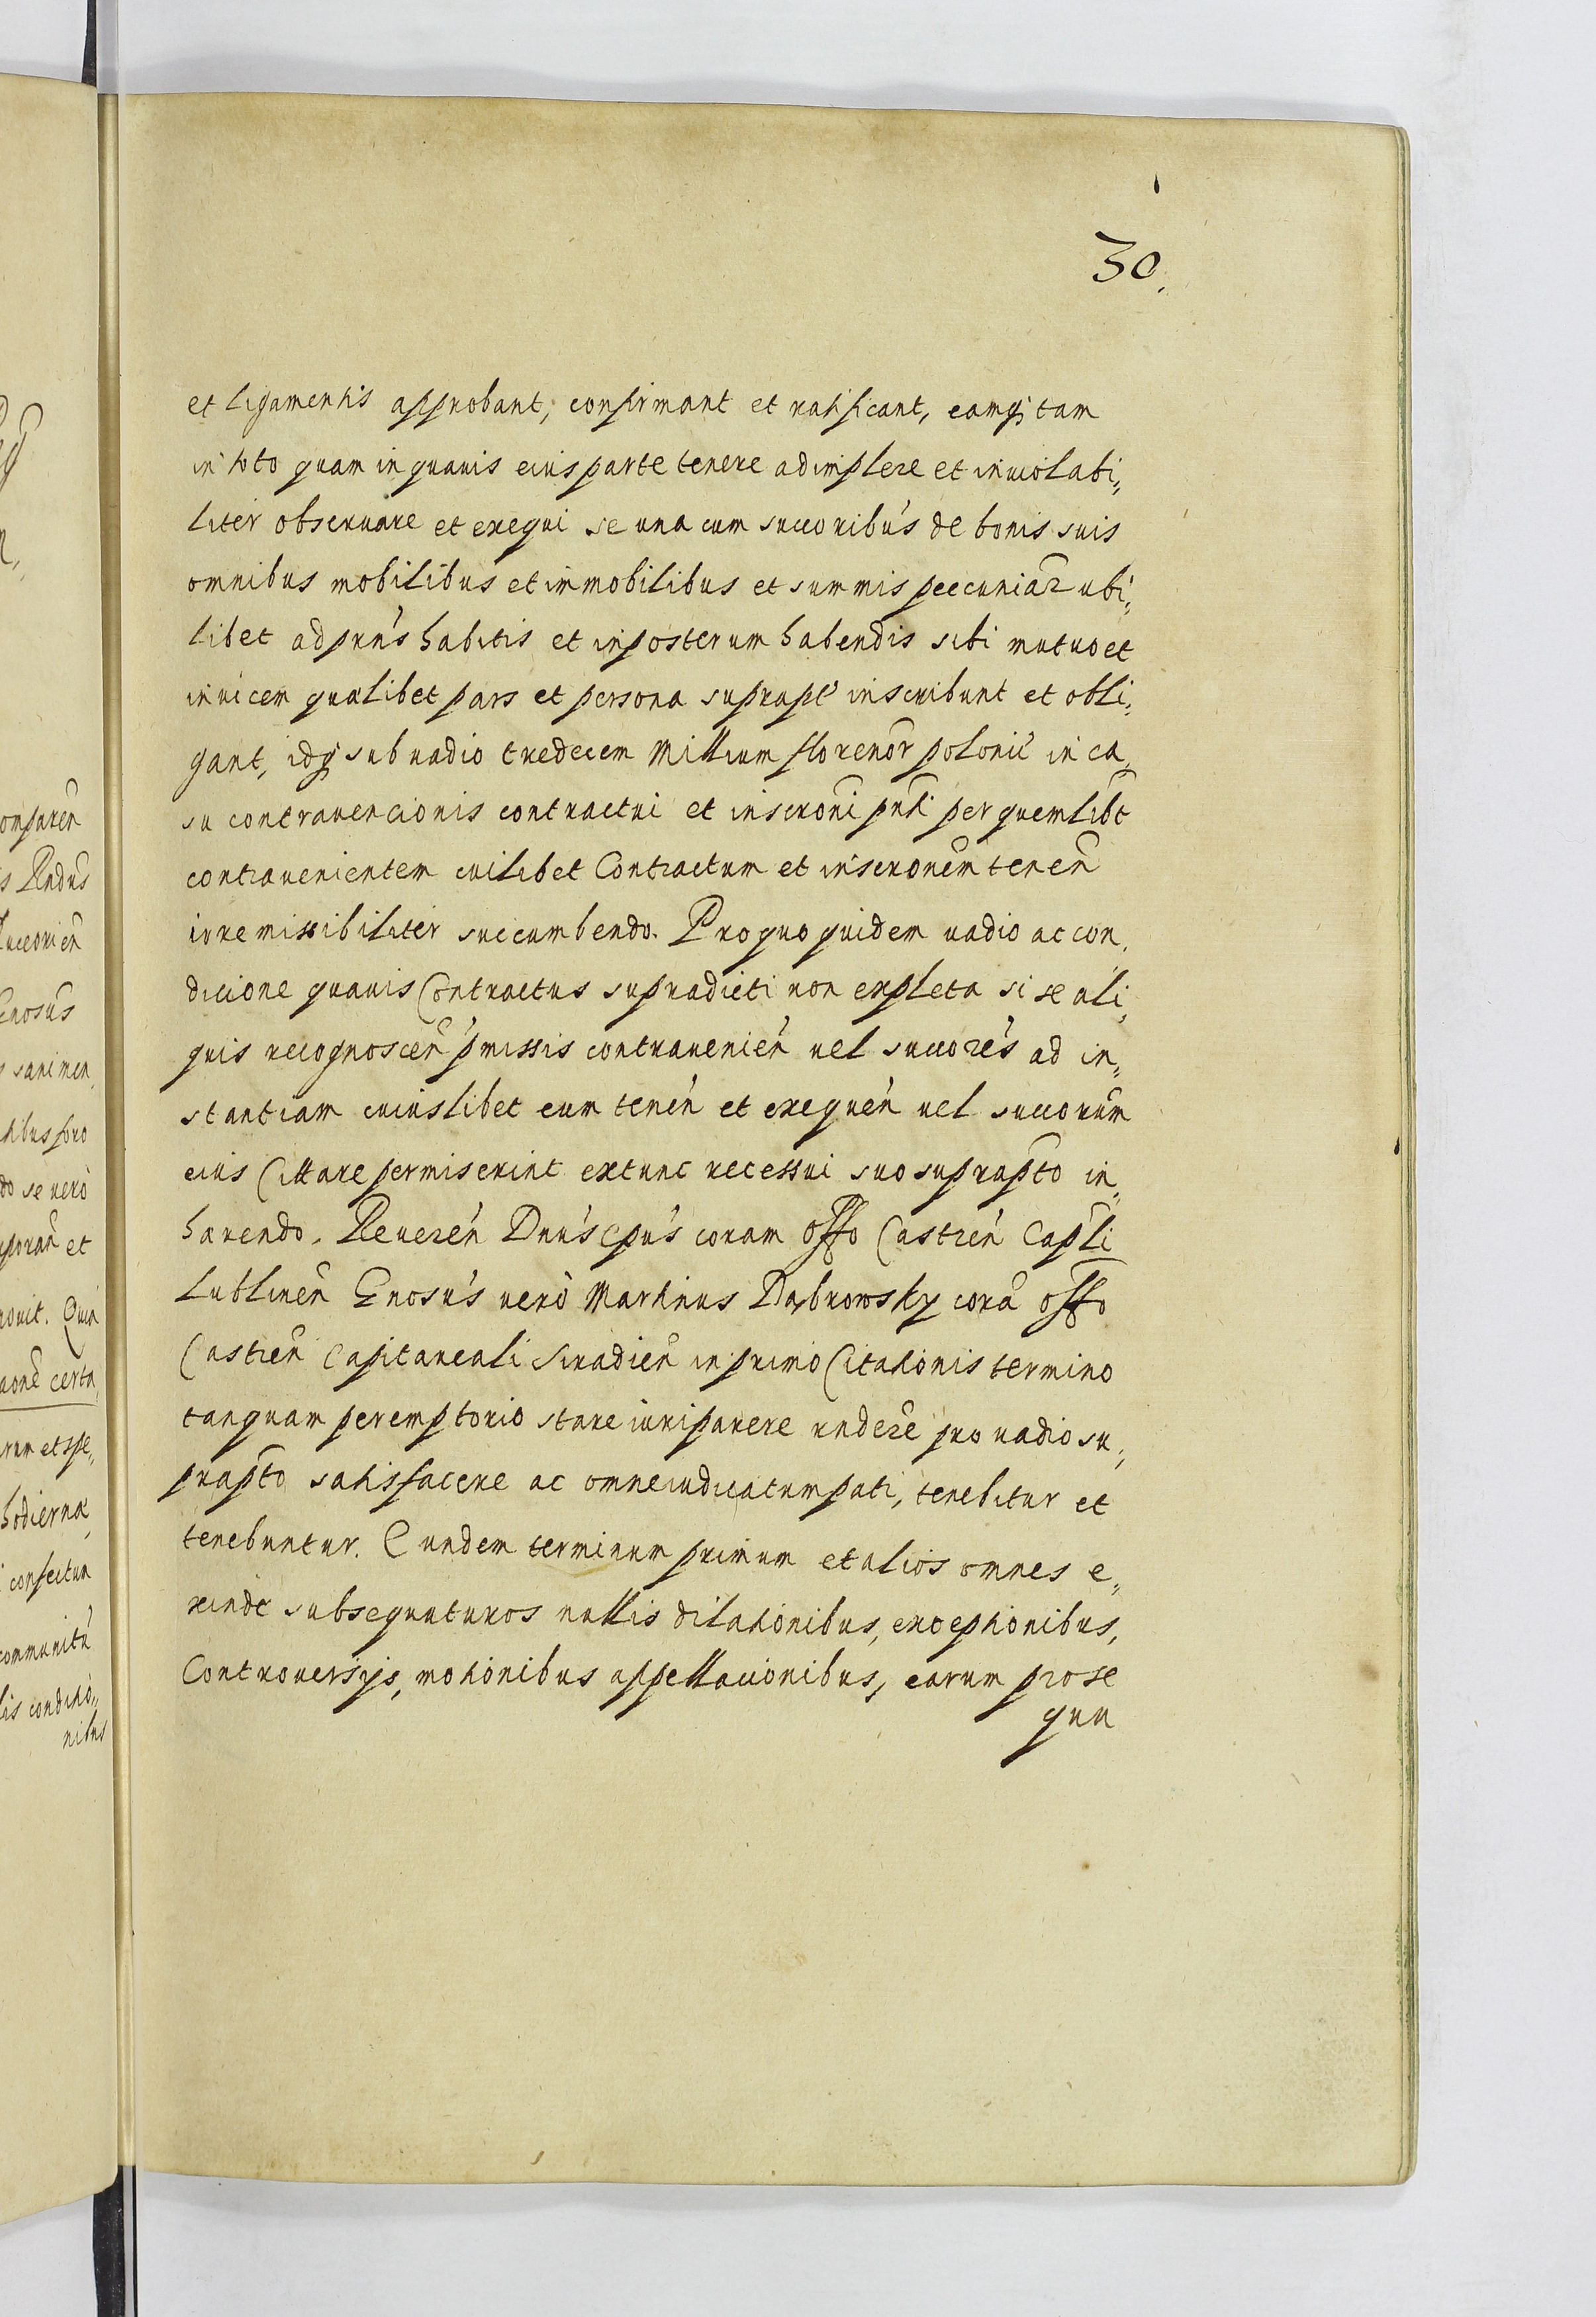 30.
et ligamentis approbant, confirmant et ratificant, eamq; tam
in toto quam in quauis eius parte tenere adimplere et inuiolabi„
liter obseruare et exequi se una cum succoribus de bonis suis
omnibus mobilibus et immobilibus et summis peecuniar ubi„
libet ad prns habitis et inposterum habendis sibi mutuo et
inuicem quælibet pars et persona suprapt inscribunt et obli„
gant, idq; sub uadio tredecem Millium florenor polonic in ca„
su contrauencionis contractui et inscroni pnti per quemlibt
contrauenientem cuilibet Contractum et inscronem tenen
irremissibiliter succumbendo. Pro quo quidem uadio ac con„
dicione quauis Contractus supradicti non expleta si se ali„
quis recognoscen pmissis contrauenien uel succores ad in„
stantiam cuiuslibet eum tenen et exequen uel succorum
eius Cittare permiserint extunc recessui suo suprapto in„
hærendo. Reueren Dnus Epus coram offo Castren Capli
Lublinen Gnosus uero Martinus Dąbrowsky cora offo
Castren Capitaneali Siradien in primo Citationis termino
tanquam peremptorio stare iuri parere rndere pro uadio su„
prapto satisfacere ac omne iudicatum pati, tenebitur et
tenebuntur. Eundem terminum primum et alios omnes e„
xinde subsequuturos nullis dilationibus, exceptionibus,
Controuersijs, motionibus appellacionibus, earum prose
quu
onparen
s Rndus
Luceorien
Gnosus
sani men
tibus foro
do se uero
poran et
nouit. Quia
certa
rum et spe„
hodierna
confectum
communitu
lis conditio„
nibus